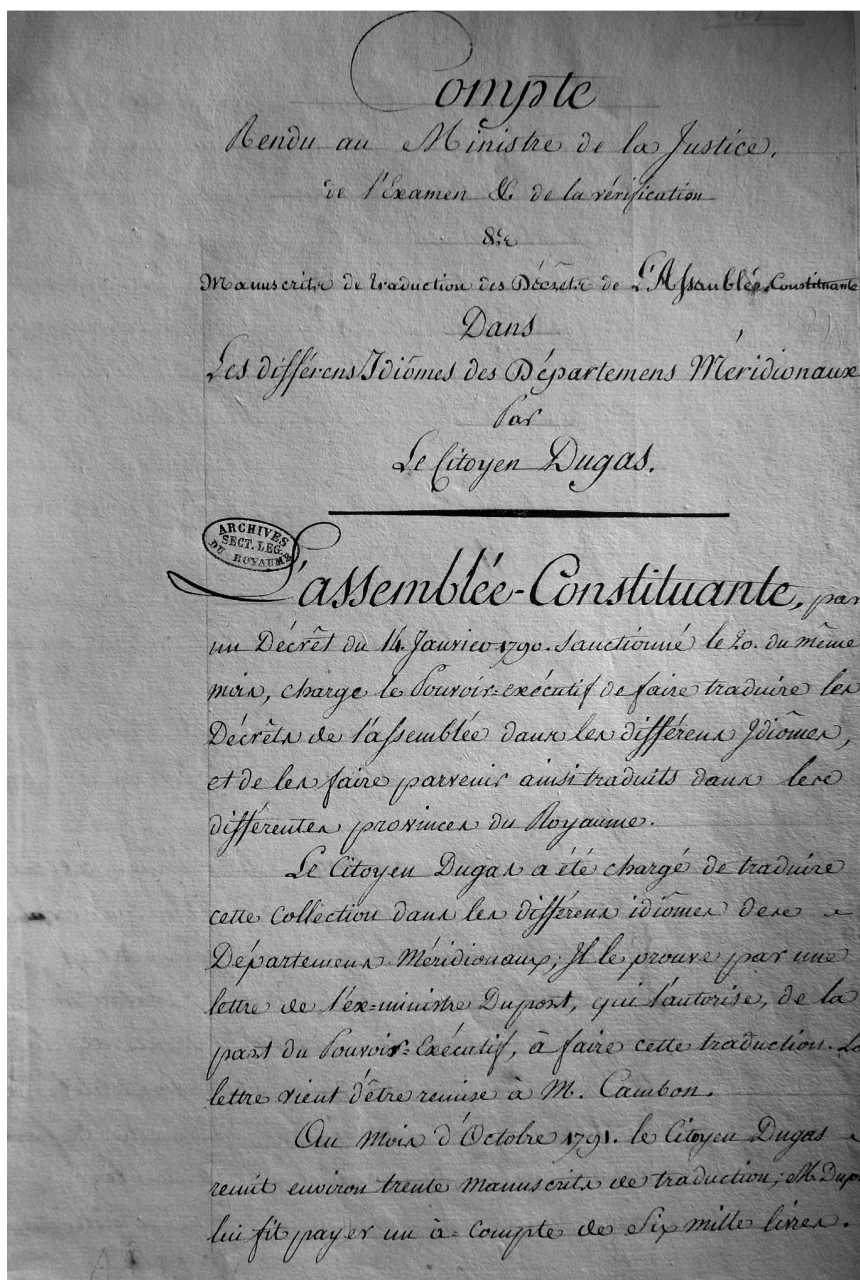 Compte
Rendu au Ministre de la Justice,
de l'Examen & de la vérification
des
Manuscrits de traduction des Décrêts de L'Assemblée Constituante
Dans
Les différens Idiômes des Départemens Méridionaux
Par
Le Citoyen Dugas.
ARCHIVES
SECT. LEG.
DU ROYAUME
L'assemblée-Constituante, par
un Décrêt du 14. Janvier 1790. Sanctionné le 20. du même
mois, charge le Pouvoir-exécutif de faire traduire les
Décrêts de l'assemblée dans les différens Idiômes,
et de les faire parvenir ainsi traduits dans les
différentes provinces du Royaume.
Le Citoyen Dugas a été chargé de traduire
cette Collection dans les différens idiômes des
Départemens Méridionaux; Il le prouve par une
lettre de l'ex-ministre Duport, qui l'autorise, de la
part du Pouvoir-Exécutif, à faire cette traduction. La
lettre vient d'être remise à M. Cambon.
Au mois d'Octobre 1791. le Citoyen Dugas
remit environ trente manuscrits de traduction; M. Dup
lui fit payer un à-compte de Six mille livres.